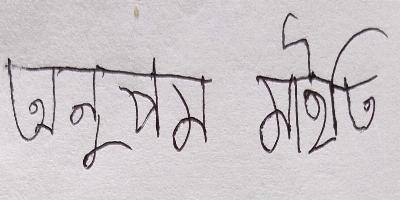 অনুপম মাইতি